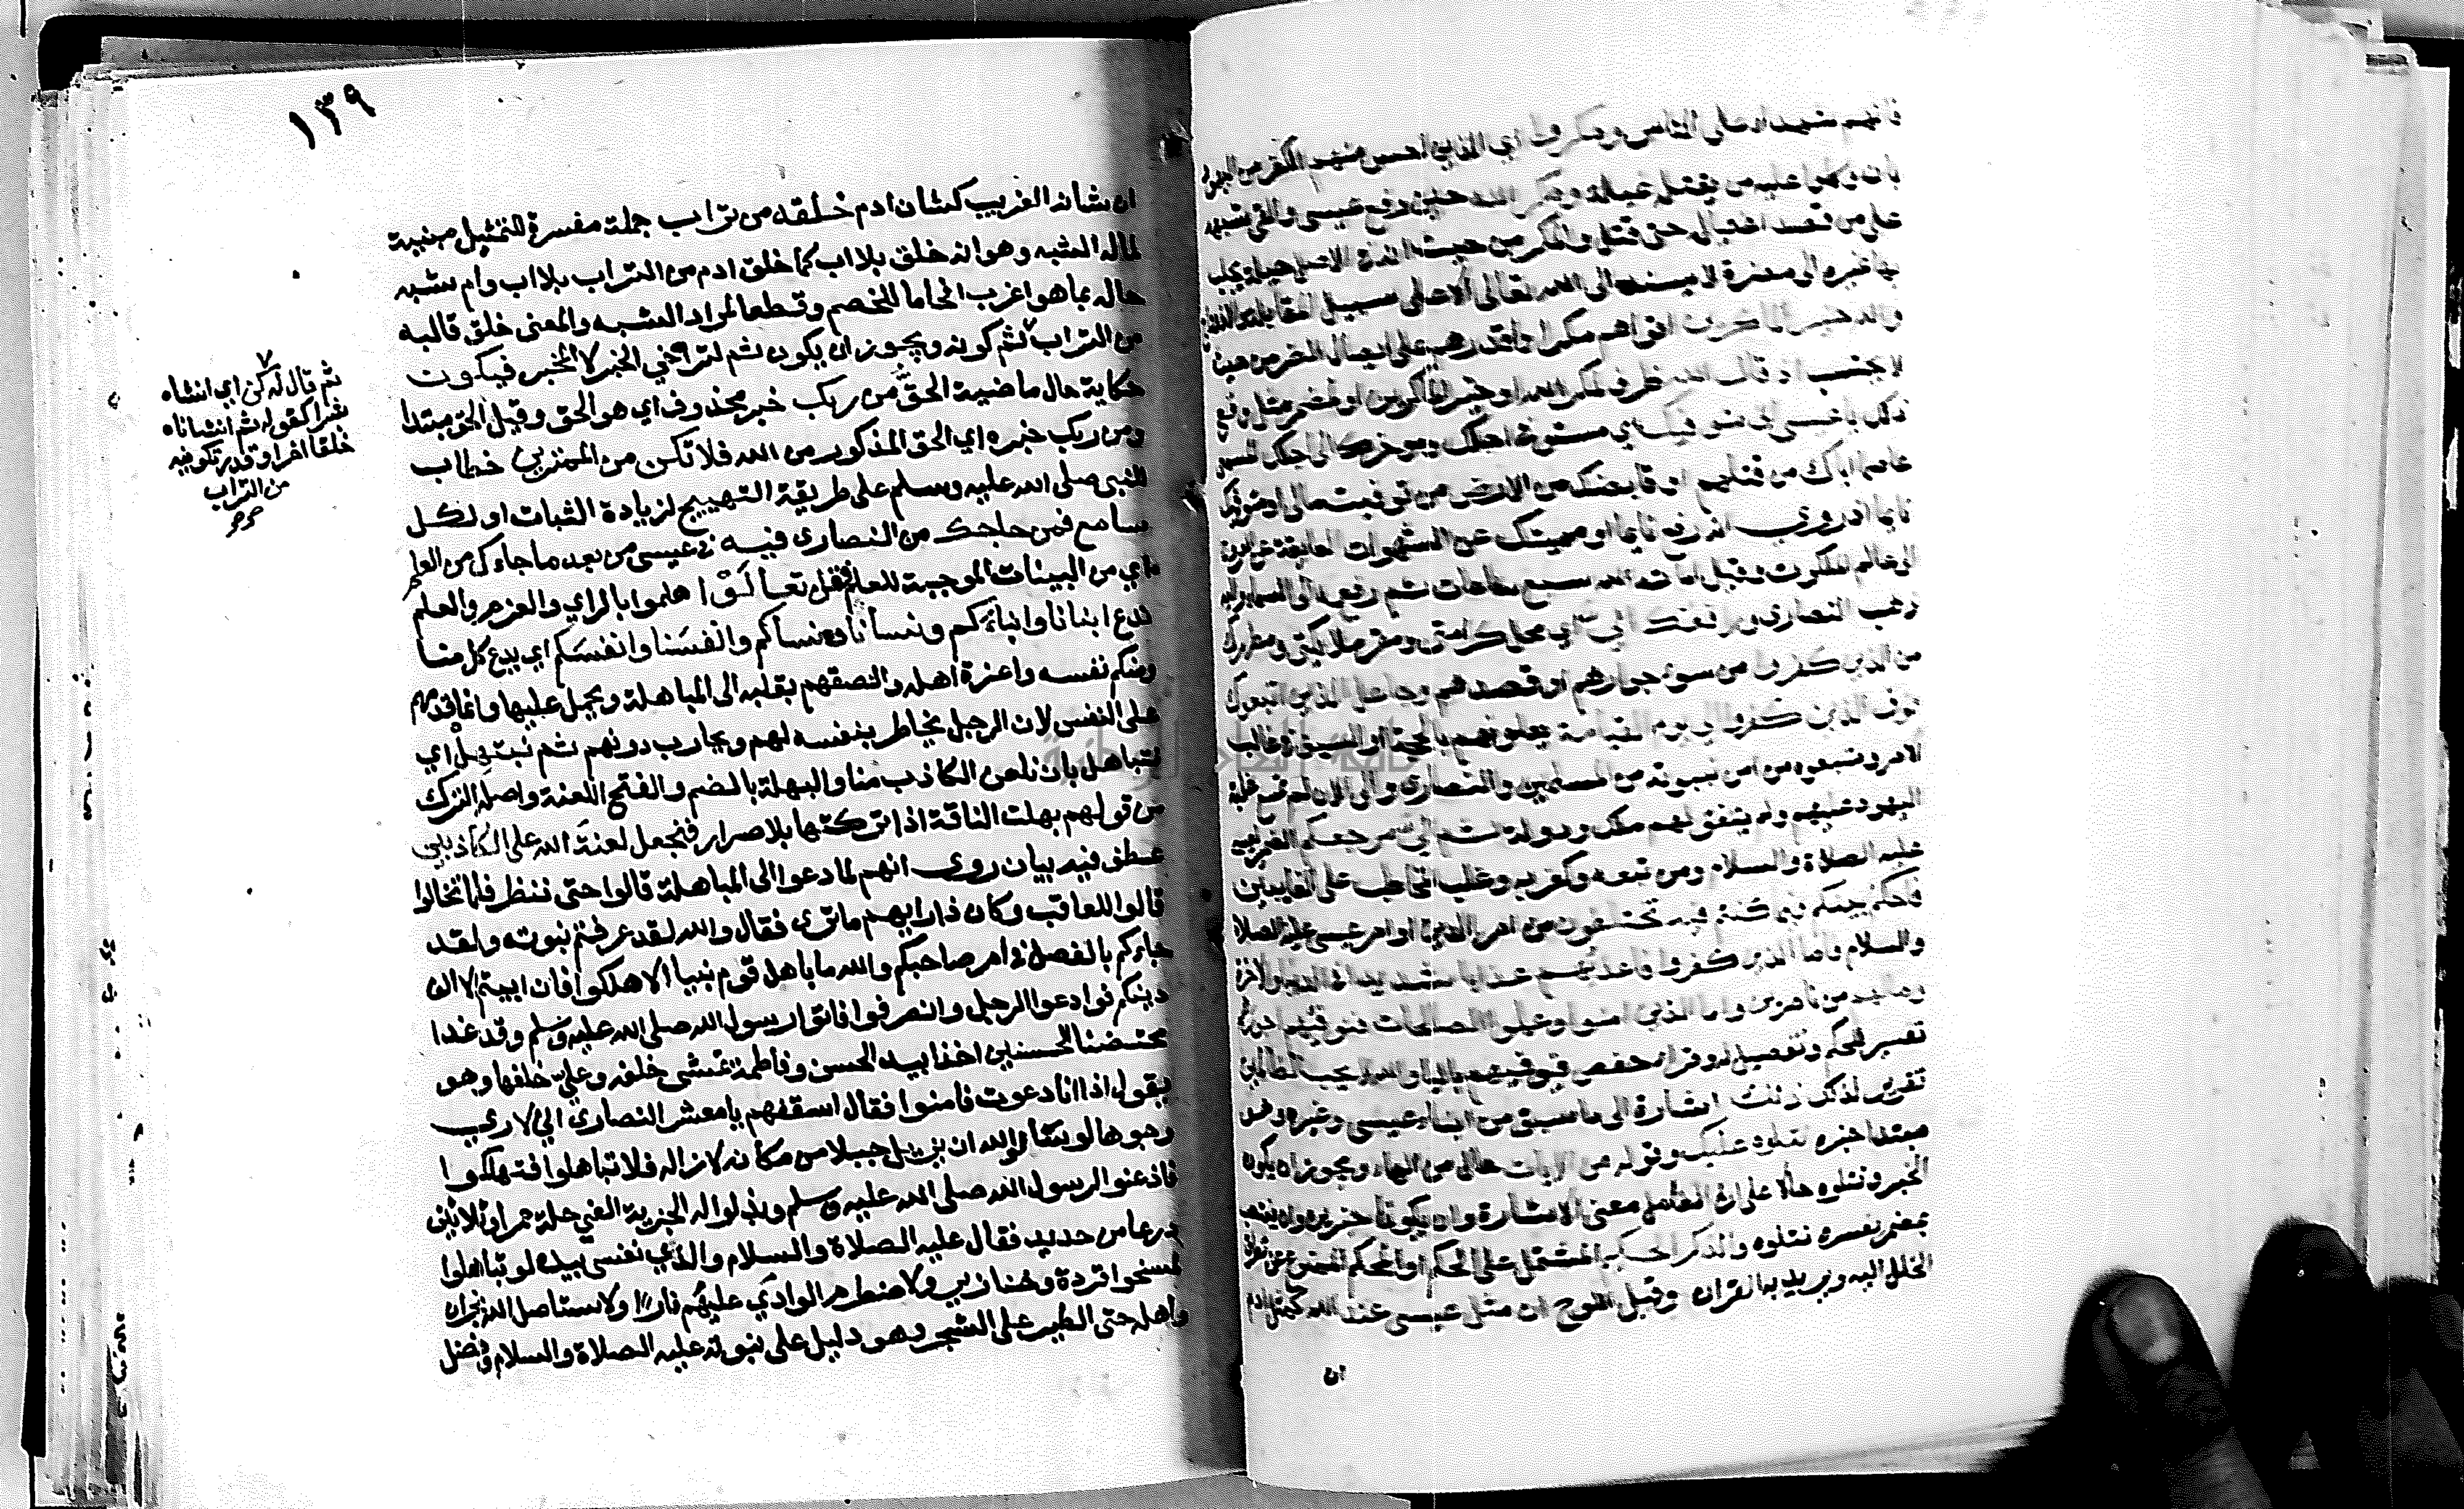 فانهم شهداء على الناس ومكروا اي الذين احس منهم الكفر من اليهود
بان وكلوا عليه من يقتل غيلة ومكر الله حين رفع عيسى والقى شبهه
على من قصد اغتياله حتى قتل والمكر من حيث انه في الاصل حيلة يجلب
بها غيره الى مضرة لا يسند الى الله تعالى الا على سبيل المقابلة
والله خير الماكرين اقواهم مكرا واقدرهم على ايصال الضرر من حيث
لا يحتسب اذ قال الله ظرف لمكر الله او خير الماكرين او لمضمر مثل وقع
ذلك يا عيسى اني متوفيك اي مستوفي اجلك ومؤخرك الى اجلك المسمى
عاصما اياك من قتلهم او قابضك من الارض من توفيت مالي او متوفيك
نايما اذ روي انه رفع نايما او مميتك عن الشهوات العايقة عن العروج
الى عالم الملكوت وقيل اماته الله سبع ساعات ثم رفعه الى السماء واليه
ذهب النصارى ورافعك الي اي محل كرامتي ومقر ملائكتي ومطهرك
من الذين كفروا من سوء جوارهم او قصدهم وجاعل الذين اتبعوك
فوق الذين كفروا الى يوم القيامة يعلونهم بالحجة او السيف في غالب
الامر ومتبعوه من امن بنبوته من المسلمين والنصارى والى الان لم تسمع غلبة
اليهود عليهم ولم يتفق لهم ملك ودولة ثم الي مرجعكم الضمير لعيسى
عليه الصلاة والسلام ومن تبعه وكفر به وغلب المخاطب على الغايبين
فاحكم بينكم فيما كنتم فيه تختلفون من امر الدين او امر عيسى عليه الصلاة
والسلام فاما الذين كفروا فاعذبهم عذابا شديدا في الدنيا والاخرة
وما لهم من ناصرين واما الذين امنوا وعملوا الصالحات فنوفيهم اجورهم
تفسير للحكم وتفصيل له وقراء حفص فيوفيهم بالياء والله لا يحب الظالمين
تقرير لذلك ذلك اشارة الى ما سبق من انباء عيسى وغيره وهو
مبتدا خبره نتلوه عليك وقوله من الايات حال من الهاء ويجوز ان يكون
الخبر ونتلوه حالا على ان العامل معنى الاشارة وان يكونا خبرين وان ينتصب
بمضمر يفسره نتلوه والذكر الحكيم المشتمل على الحكم او المحكم الممنوع عن تطرق
الخلل اليه ويريد به القران وقيل اللوح ان مثل عيسى عند الله كمثل ادم
ان
١٣٩
ان شانه الغريب كشان ادم خلقه من تراب جملة مفسرة للتمثيل مبينة
لماله الشبه وهو انه خلق بلا اب كما خلق ادم من التراب بلا اب وام شبه
حاله بما هو اغرب الحاما للخصم وقطعا لمواد الشبه والمعنى خلق قالبه
من التراب ثم كونه ويجوز ان يكون ثم لتراخي الخبر لا المخبر فيكون
حكاية حال ماضية الحق من ربك خبر محذوف اي هو الحق وقيل الحق مبتدا
ومن ربك خبره اي الحق المذكور من الله فلا تكن من الممترين خطاب
للنبي صلى الله عليه وسلم على طريقة التهييج لزيادة الثبات او لكل
سامع فمن حاجك من النصارى فيه في عيسى من بعد ما جاءك من العلم
اي من البينات الموجبة للعلم فقل تعالوا هلموا بالراي والعزم والعلم
ندع ابنانا وابناءكم ونسانا ونساكم وانفسنا وانفسكم اي يدع كل منا
ومنكم نفسه واعزة اهله والصقهم بقلبه الى المباهلة ويحمل عليها وانما قدمهم
على النفس لان الرجل يخاطر بنفسه لهم ويحارب دونهم ثم نبتهل اي
نتباهل بان نلعن الكاذب منا والبهلة بالضم والفتح اللعنة واصله الترك
من قولهم بهلت الناقة اذا تركتها بلا صرار فنجعل لعنة الله على الكاذبين
عطف فيه بيان روي انهم لما دعوا الى المباهلة قالوا حتى ننظر فلما تخالوا
قالوا للعاقب وكان ذا رايهم ما ترى فقال والله لقد عرفتم نبوته ولقد
جاءكم بالفصل في امر صاحبكم والله ما باهل قوم نبيا الا هلكوا فان ابيتم الا الف
دينكم فوادعوا الرجل وانصرفوا فاتوا رسول الله صلى الله عليه وسلم وقد غدا
محتضنا الحسين اخذا بيد الحسن وفاطمة تمشى خلفه وعلي خلفها وهو
يقول اذا انا دعوت فامنوا فقال اسقفهم يا معشر النصارى اني لارى
وجوها لو سألوا الله ان يزيل جبلا من مكانه لازاله فلا تباهلوا فتهلكوا
فاذعنوا لرسول الله صلى الله عليه وسلم وبذلوا له الجزية الفي حلة حمرا وثلاثين
درعا من حديد فقال عليه الصلاة والسلام والذي نفسي بيده لو تباهلوا
لمسخوا قردة وخنازير ولاضطرم الوادي عليهم نارا ولاستاصل الله نجران
واهله حتى الطير على الشجر وهو دليل على نبوته عليه الصلاة والسلام وفضل
ثم قال له كن اي انشاه
بشرا كقوله ثم انشاناه
خلقا اخر او قدر تكوينه
من التراب